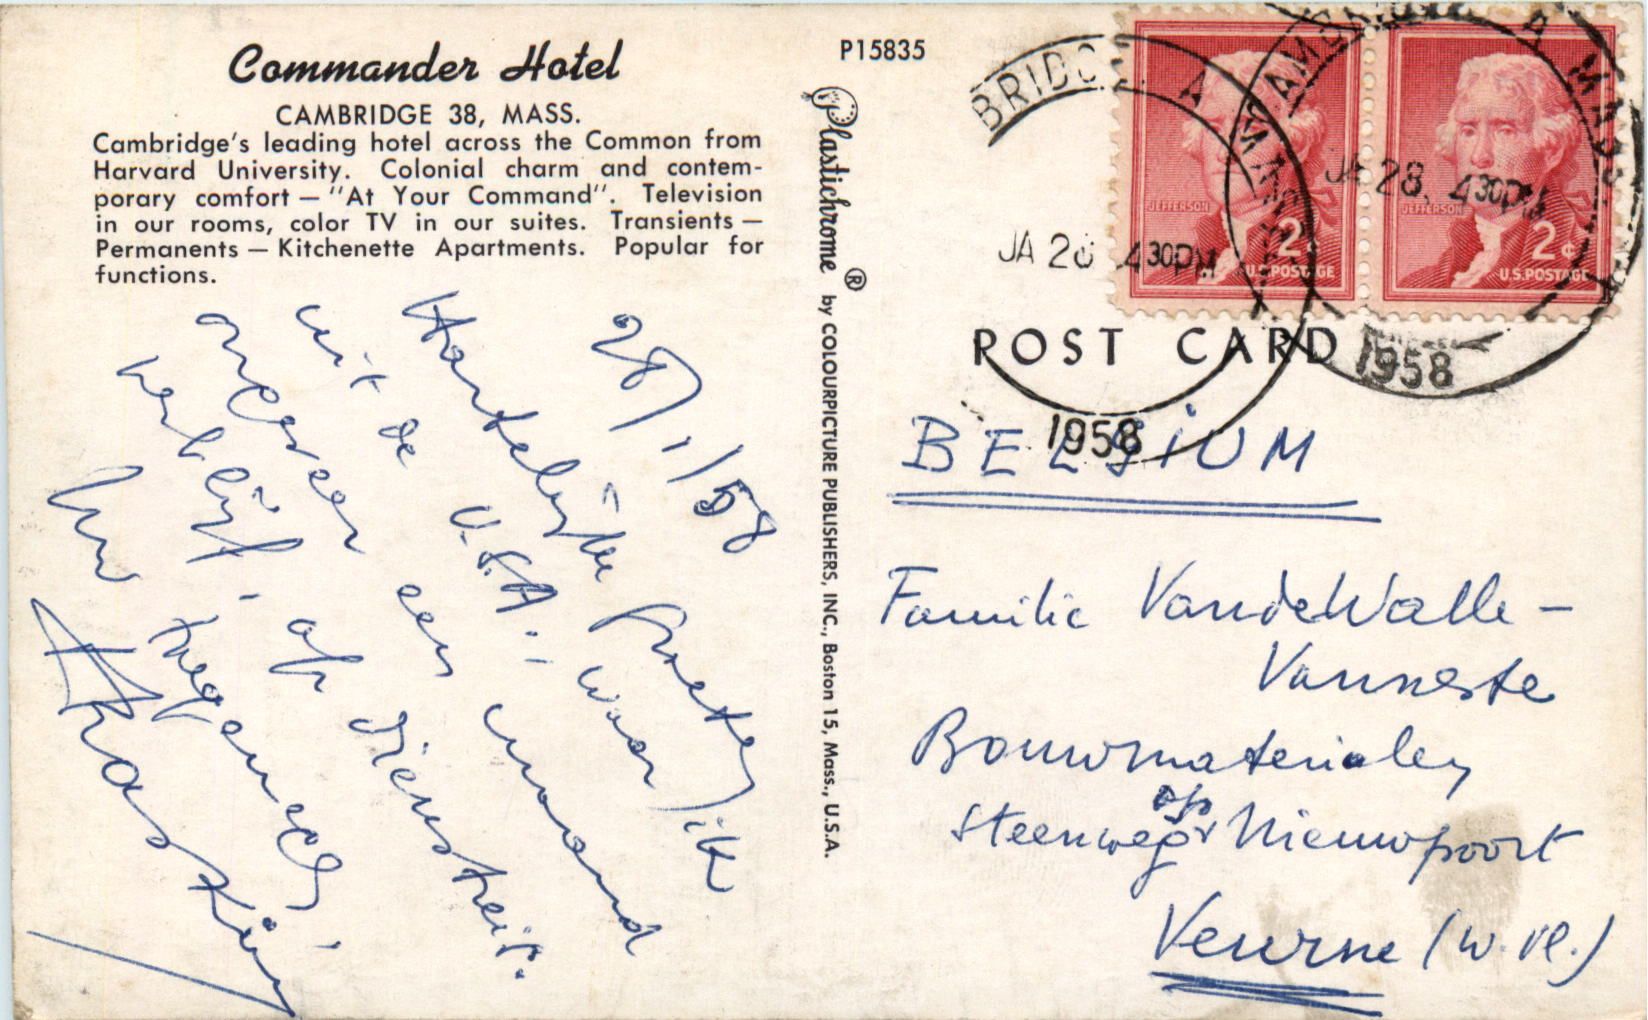 Commander Hotel
CAMBRIDGE 38, MASS.
Cambridge's leading hotel across the Common from
Harvard University. Colonial charm and contem-
porary comfort — "At Your Command". Television
in our rooms, color TV in our suites. Transients —
Permanents — Kitchenette Apartments. Popular for
functions.
28/1/58
Hartelijke groeten
uit de U.S.A. - waar ik
ongeveer een maand
verblijf, op dienstreis.
Uw toegenegen,
P15835
Plastichrome ® by COLOURPICTURE PUBLISHERS, INC., Boston 15, Mass., U.S.A.
BRIDGE A MASS
JA 28 430PM
1958
CAMBRIDGE A MASS
JA 28 430PM
1958
JEFFERSON
2
U.S.POSTAGE
JEFFERSON
2¢
U.S.POSTAGE
POST CARD
BELGIUM
Familie VandeWalle -
Vanneste
Bouwmaterialen
Steenweg op Nieuwpoort
Veurne (W. Vl.)